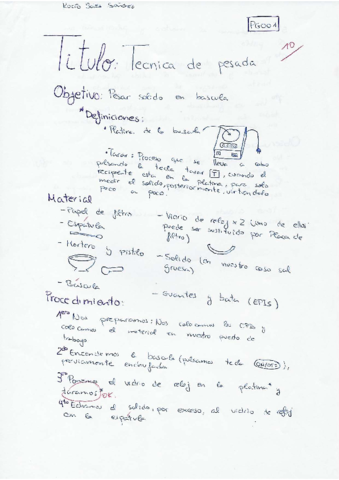 PG001
10
Titulo: Tecnica de pesada
Objetivo: Pesar solido en bascula
*Definiciones:
• Platina de la bascula
• Tarar: Proceso que se lleva a cabo
pulsando la tecla tarar T, cuando el
recipiente esta en la platina, para solo
medir el solido, posteriormente, virtiendolo
poco a poco.
Material
- Papel de filtro
- Vidrio de reloj x 2 (uno de ellos
- Espátula
puede ser sustituido por Placa de
filtro)
- Mortero y pistilo
- Solido (en nuestro caso sal
gruesa)
- Báscula
- Guantes y bata (EPIs)
Procedimiento:
1º Nos preparamos: Nos colocamos la EPIs y
colocamos el material en nuestro puesto de
trabajo
2º Encendemos la bascula (pulsamos tecla ON/OFF),
previamente enchufada
3º Ponemos el vidrio de reloj en la platina* y
taramos* OK.
4º Echamos el solido, por exceso, al vidrio de reloj
con la espátula